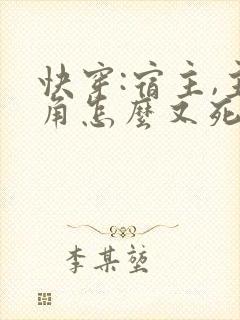 快穿:宿主,主
角怎麼又死
李某堃